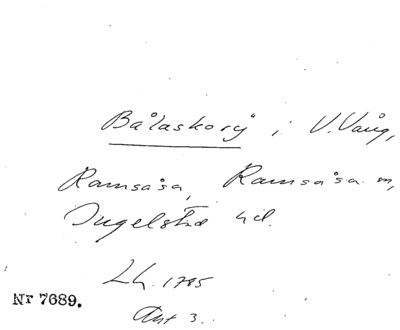 Bålaskorg" i V. Vång,
Ramsåsa, Ramsåsa sn,
Ingelstad hd.
Lh. 1785
Nr 7689.
Akt 3.